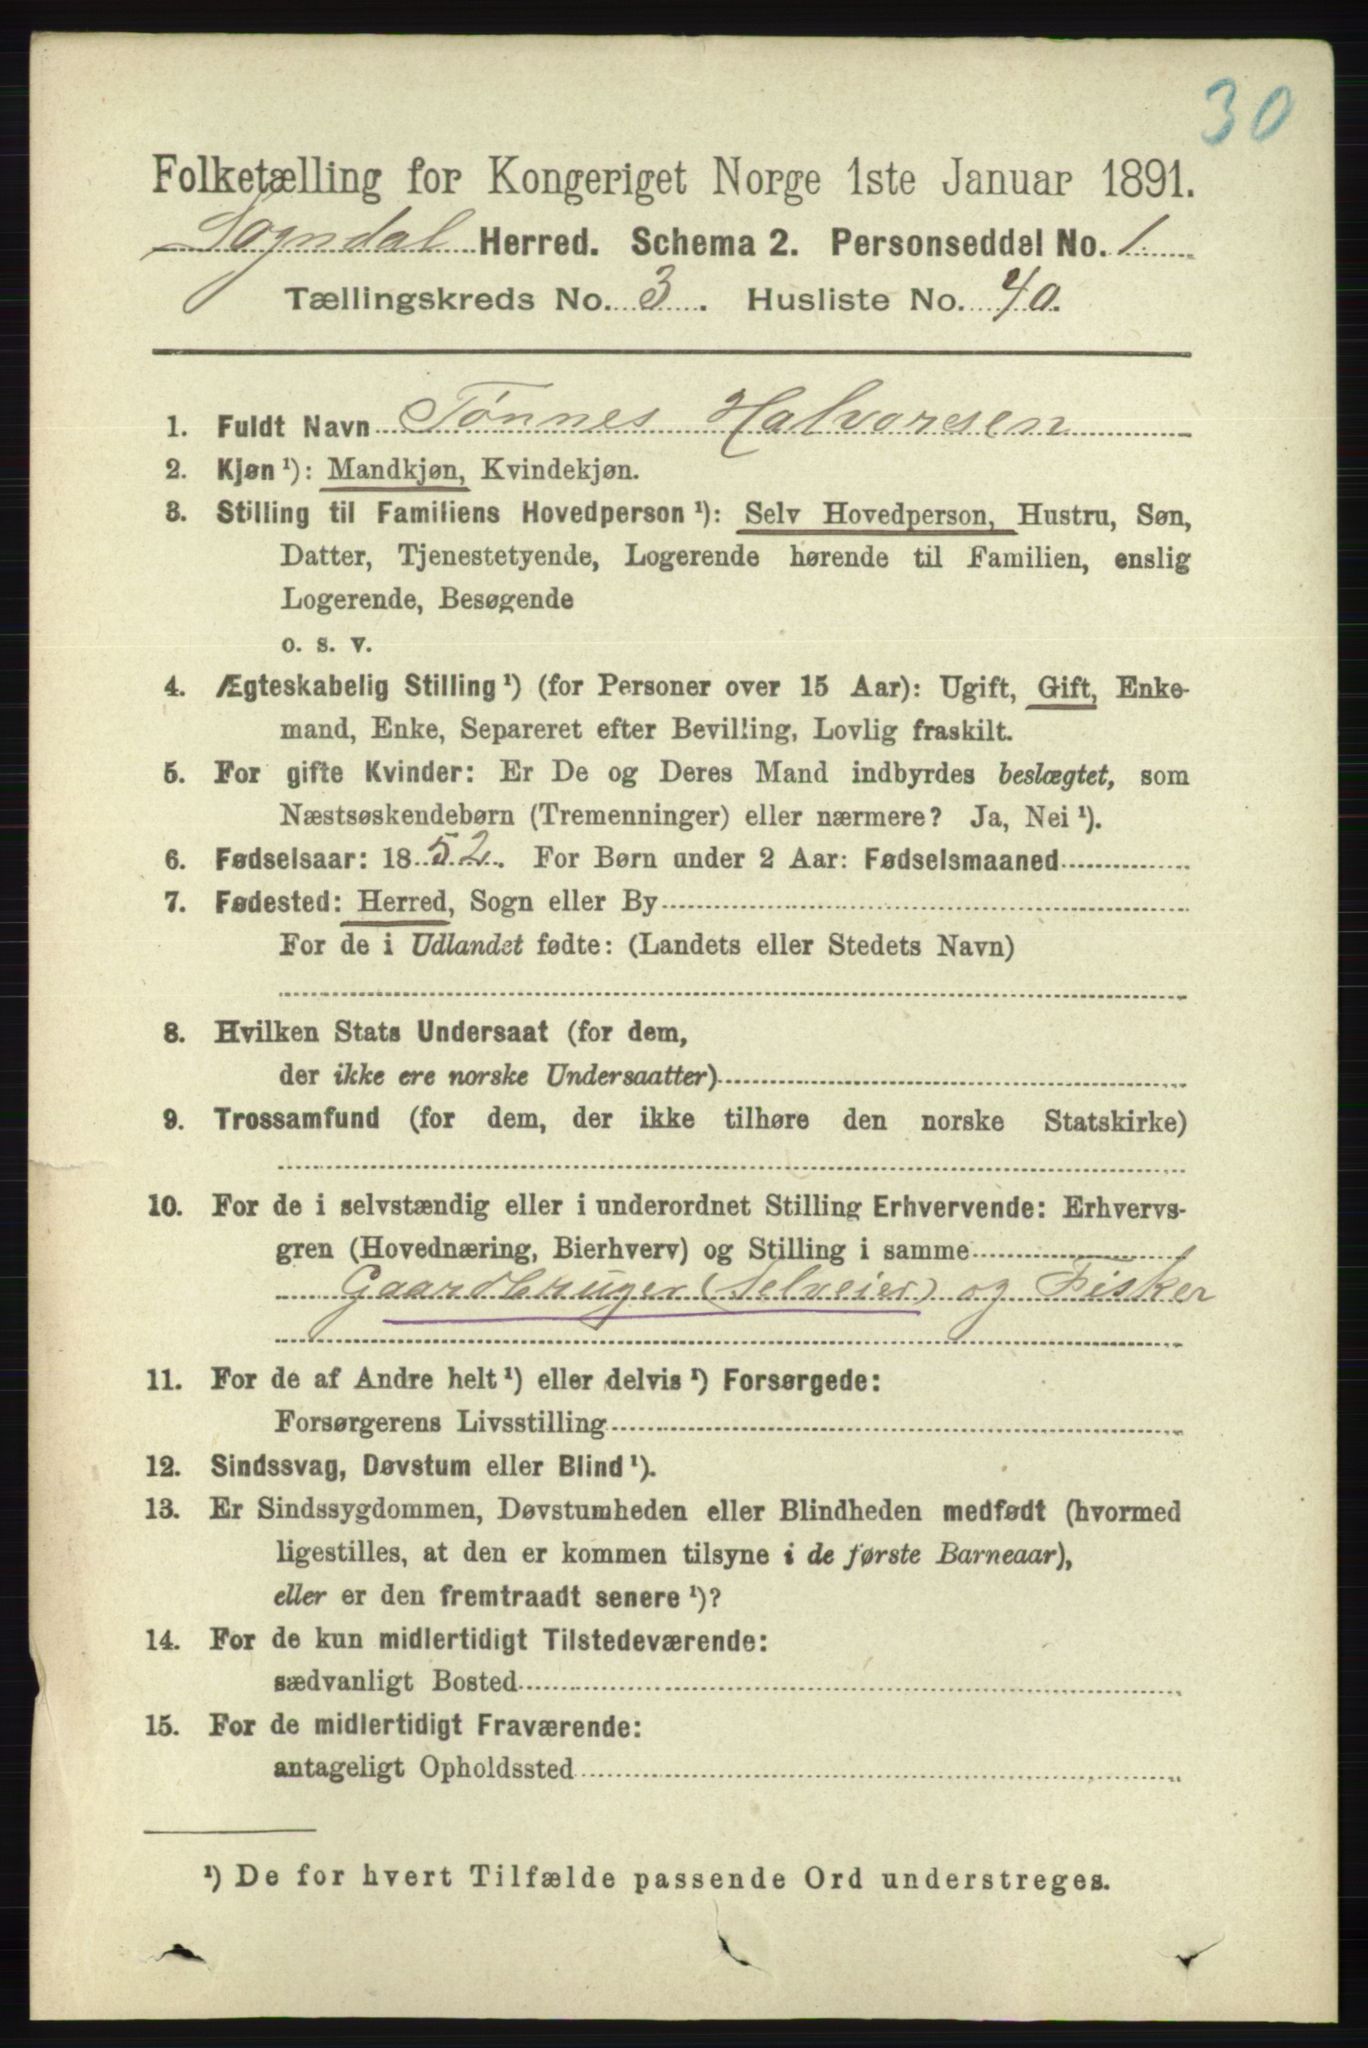 30
Folketælling for Kongeriget Norge 1ste Januar 1891.
Sogndal Herred. Schema 2. Personseddel No. 1
Tællingskreds No. 3. Husliste No. 40.
1. Fuldt Navn Tønnes Halvorsen
2. Kjøn ¹): Mandkjøn, Kvindekjøn.
3. Stilling til Familiens Hovedperson ¹): Selv Hovedperson, Hustru, Søn,
Datter, Tjenestetyende, Logerende hørende til Familien, enslig
Logerende, Besøgende
o. s. v.
4. Ægteskabelig Stilling ¹) (for Personer over 15 Aar): Ugift, Gift, Enke-
mand, Enke, Separeret efter Bevilling, Lovlig fraskilt.
5. For gifte Kvinder: Er De og Deres Mand indbyrdes beslægtet, som
Næstsøskendebørn (Tremenninger) eller nærmere? Ja, Nei ¹).
6. Fødselsaar: 1852. For Børn under 2 Aar: Fødselsmaaned
7. Fødested: Herred, Sogn eller By
For de i Udlandet fødte: (Landets eller Stedets Navn)
8. Hvilken Stats Undersaat (for dem,
der ikke ere norske Undersaatter)
9. Trossamfund (for dem, der ikke tilhøre den norske Statskirke)
10. For de i selvstændig eller i underordnet Stilling Erhvervende: Erhvervs-
gren (Hovednæring, Bierhverv) og Stilling i samme
Gaardbruger (Selveier) og Fisker
11. For de af Andre helt ¹) eller delvis ¹) Forsørgede:
Forsørgerens Livsstilling
12. Sindssvag, Døvstum eller Blind ¹).
13. Er Sindssygdommen, Døvstumheden eller Blindheden medfødt (hvormed
ligestilles, at den er kommen tilsyne i de første Barneaar),
eller er den fremtraadt senere ¹)?
14. For de kun midlertidigt Tilstedeværende:
sædvanligt Bosted
15. For de midlertidigt Fraværende:
antageligt Opholdssted
¹) De for hvert Tilfælde passende Ord understreges.